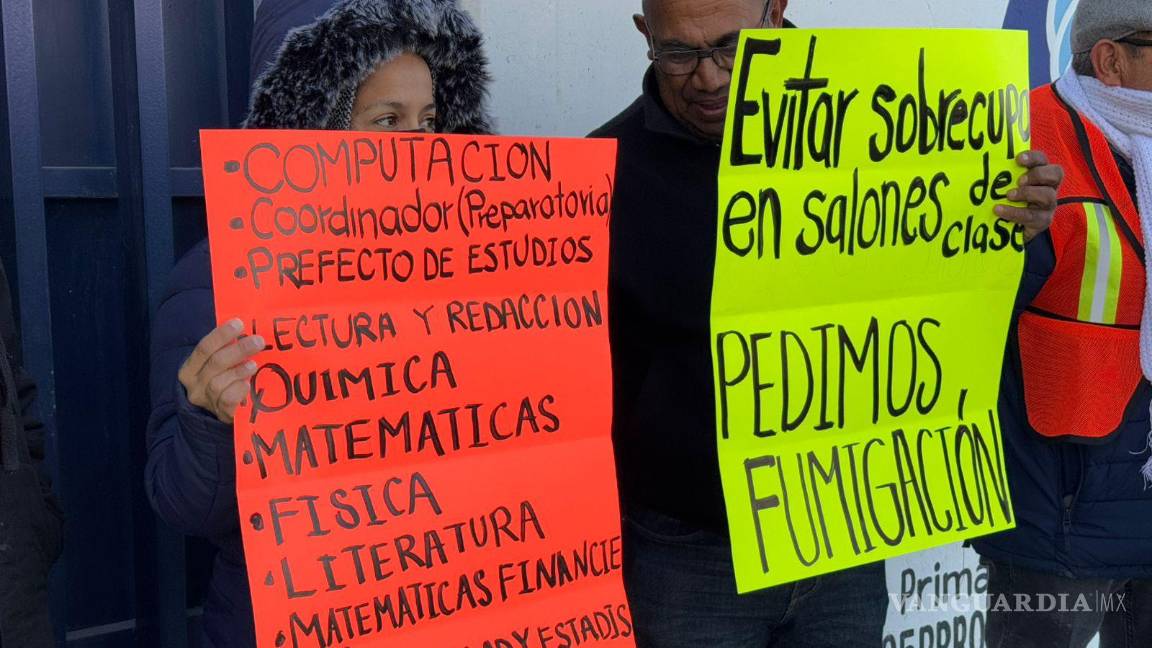 •COMPUTACION
•Coordinador (Preparatoria)
•PREFECTO DE ESTUDIOS
LECTURA Y REDACCION
QUIMICA
•MATEMATICAS
•FISICA
•LITERATURA
•MATEMATICAS FINANCIE
Y ESTADÍS
Evitar sobrecupo
en salones de
clase
PEDIMOS
FUMIGACIÓN
Prima
VANGUARDIA|MX